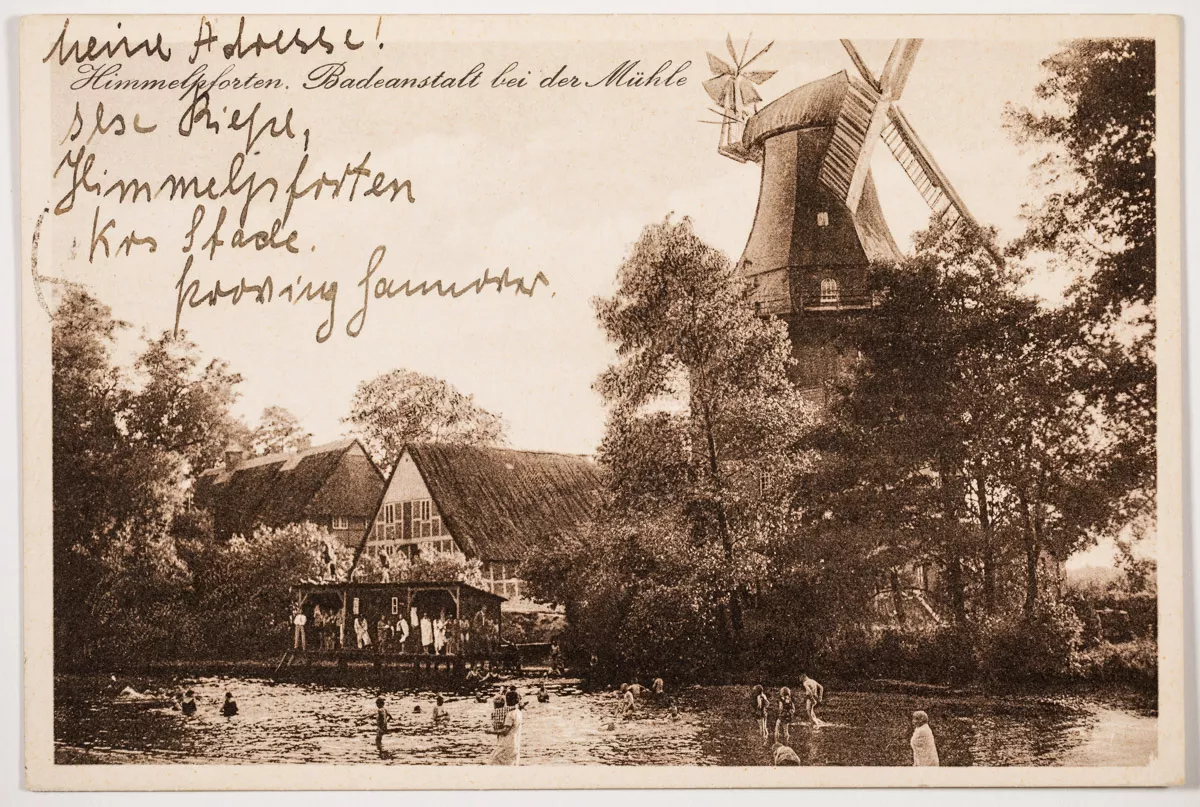 Meine Adresse!
Himmelpforten. Badeanstalt bei der Mühle
Ilse
Himmelpforten
Krs Stade.
Provinz Hannover.